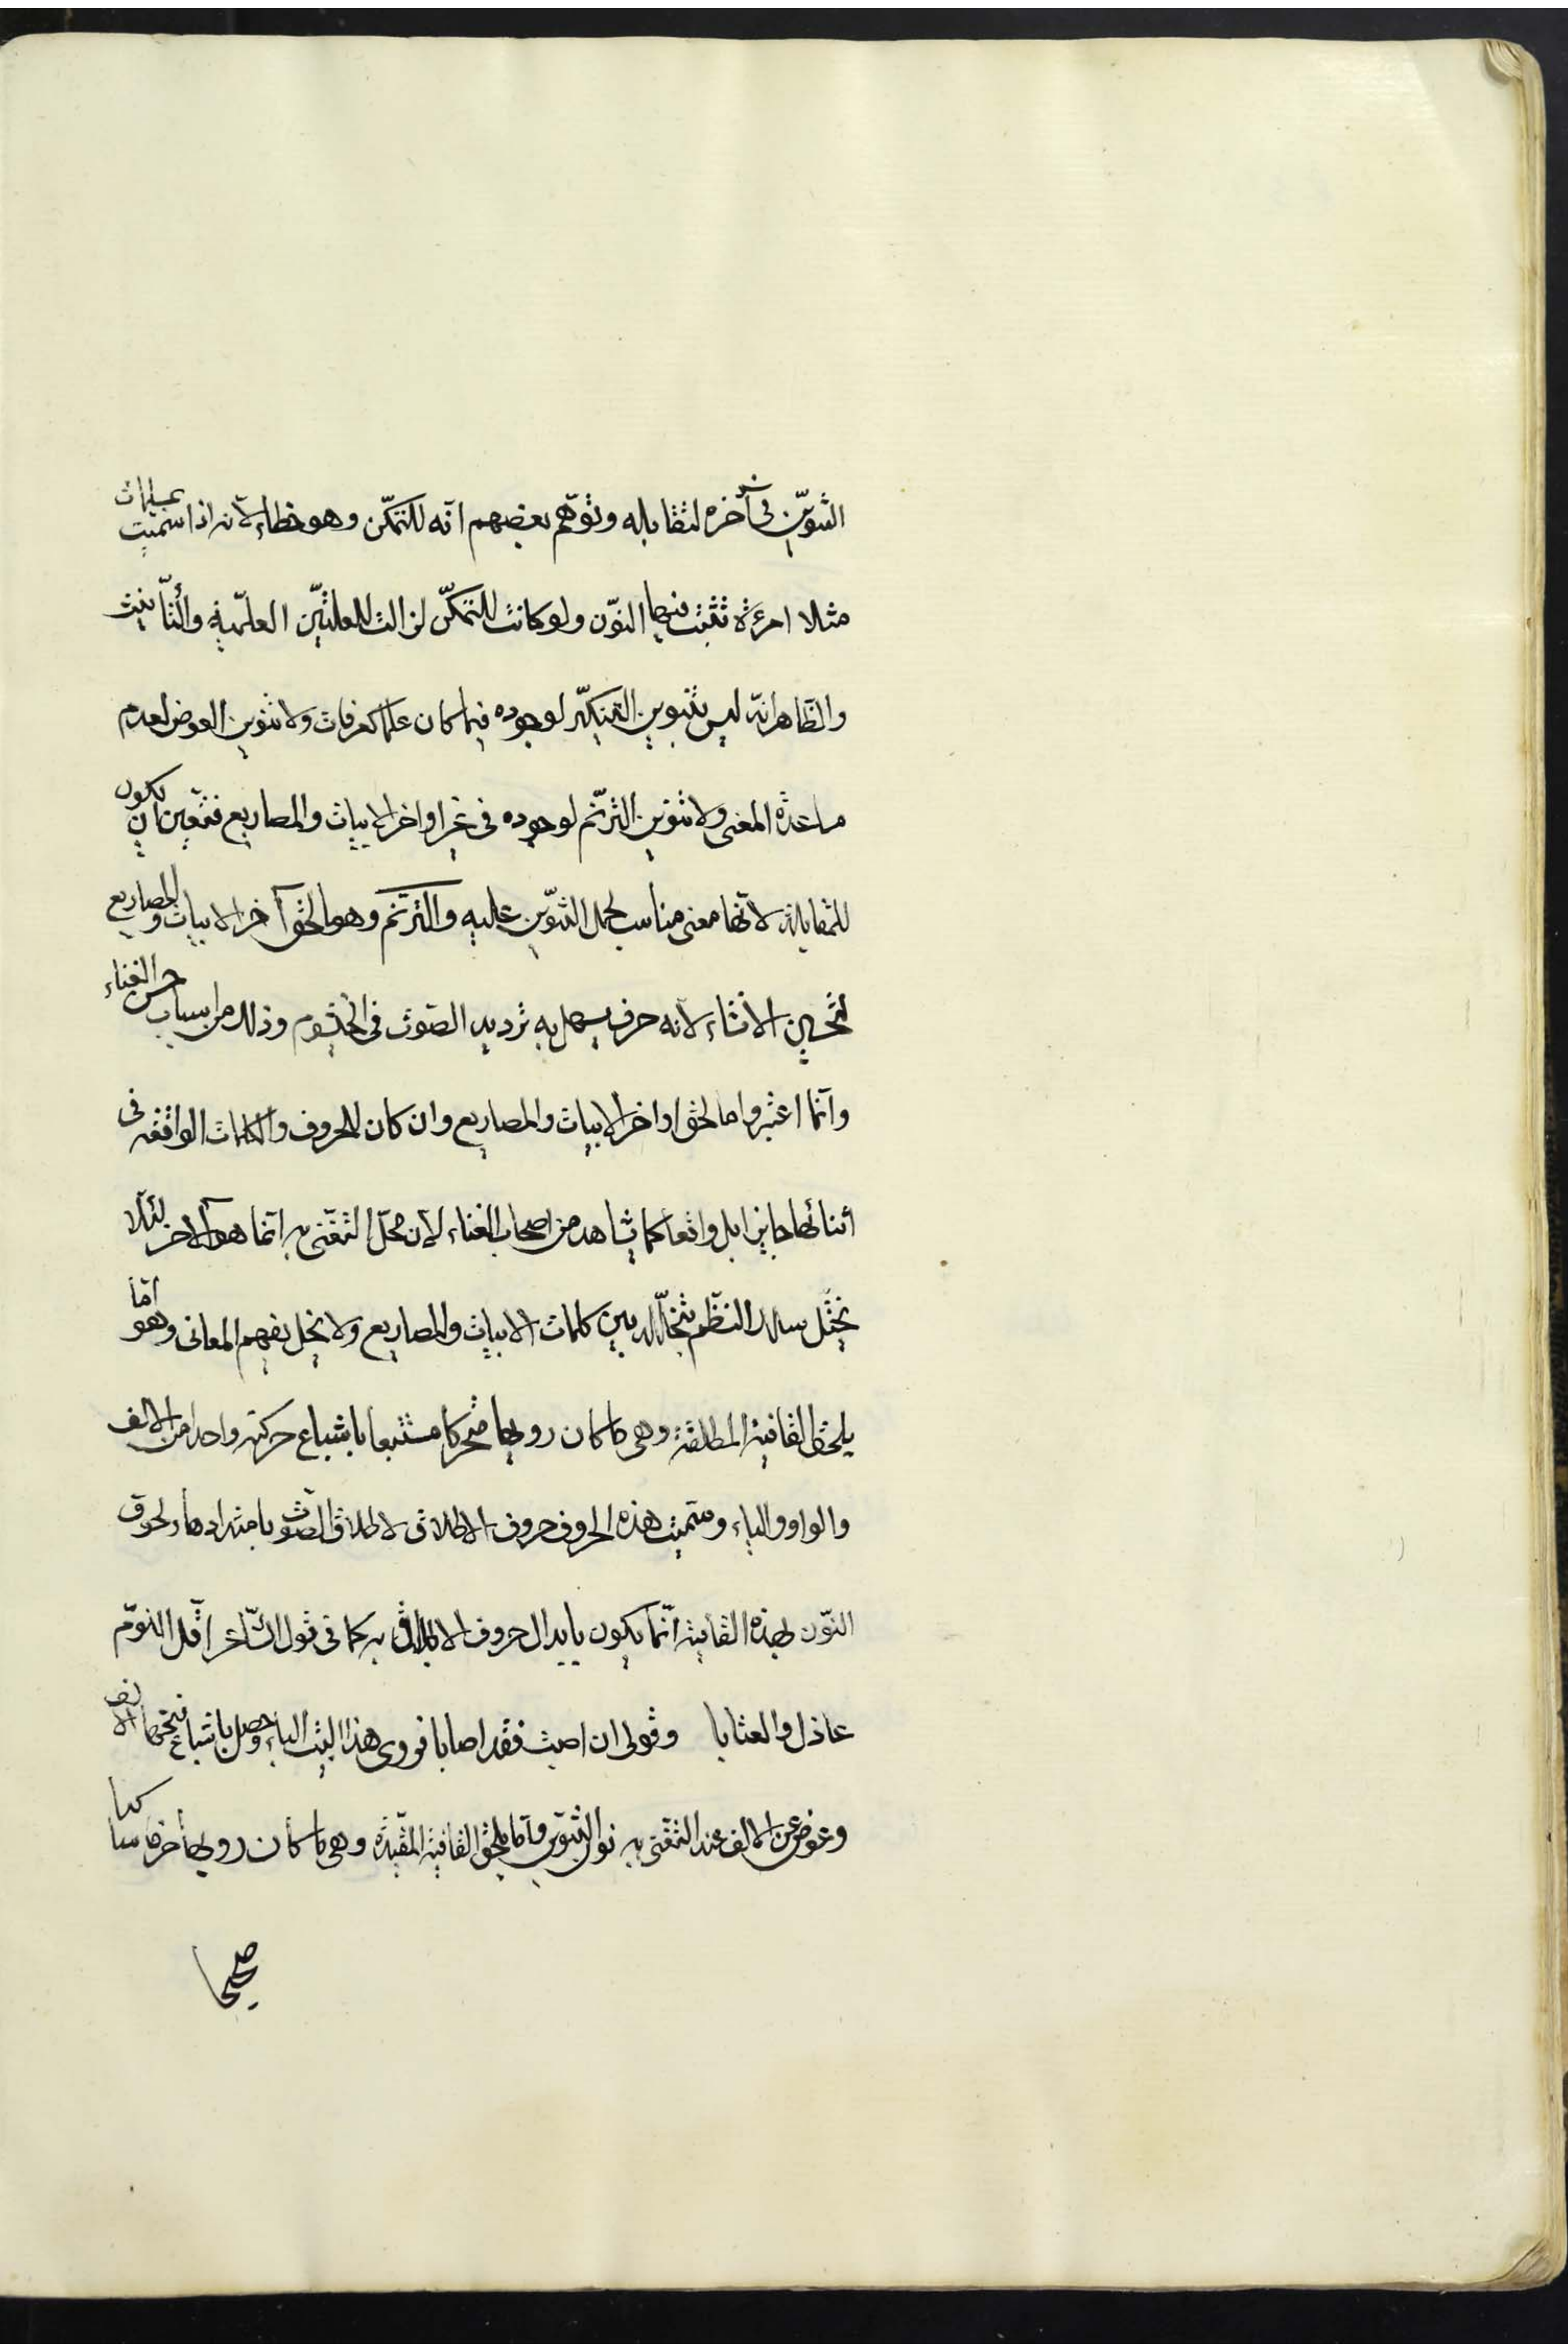 التنوين في آخره لتقابله وتوهّم بعضهم انّه للتمكّن وهو خطاء لانه اذا سميت بمسلمات
مثلا امرءة تثبت فيها النّون ولو كانت للتمكّن لزالت للعلتيّن العلّمية والتّأنيث
والظّاهر انّه ليس بتنوين التنكيّر لوجوده فيما كان علما كعرفات ولا تنوين العوض لعدم
مساعدة المعنى ولا تنوين الترنّم لوجوده في غير اواخر الابيات والمصاريع فتعّين ان يكون
للمقابلة لانّها معنى مناسب لحمل التنوّين عليه والترنّم وهو ما لحق آخر الابيات والمصاريع
لتحسين الانشاء لانه حرف يسهل به ترديد الصّوت في الخيشوم وذلك من اسباب حسن الغناء
وانّما اعتبروا ما لحق اواخر الابيات والمصاريع وان كان للحروف والكلمات الواقعه في
أثنائها جايزا بل واقعا كما يشاهد من اصحاب الغناء لانّ محلّ التغنّى به انّما هو الآخر لئلّا
يختّل سلك النظّم بتخلّله بين كلمات الابيات والمصاريع ولا يخل بفهم المعانى وهو امّا
يلحق القافية المطلقة وهي ما كان رويها متحركا مستتبعا باشباع حركته واحدا من الالف
والواو والياء وسّميت هذه الحروف حروف الاطلاق لاطلاق الصّوت بامتدادها ولحوق
النّون بهذه القافية انّما يكون بابدال حروف الاطلاق به كما في قول الشّاعر اقّلى اللّوم
عاذل والعتابا وقولى ان اصبت فقد اصابا فروى هذا البيت الباء وحصل باشباع فتحها الالف
وعوض عن الالف عند التغنّى به نون التنوين وامّا يلحق القافية المقّيدة وهي ما كان رويها حرفا ساكنا
صحيحا